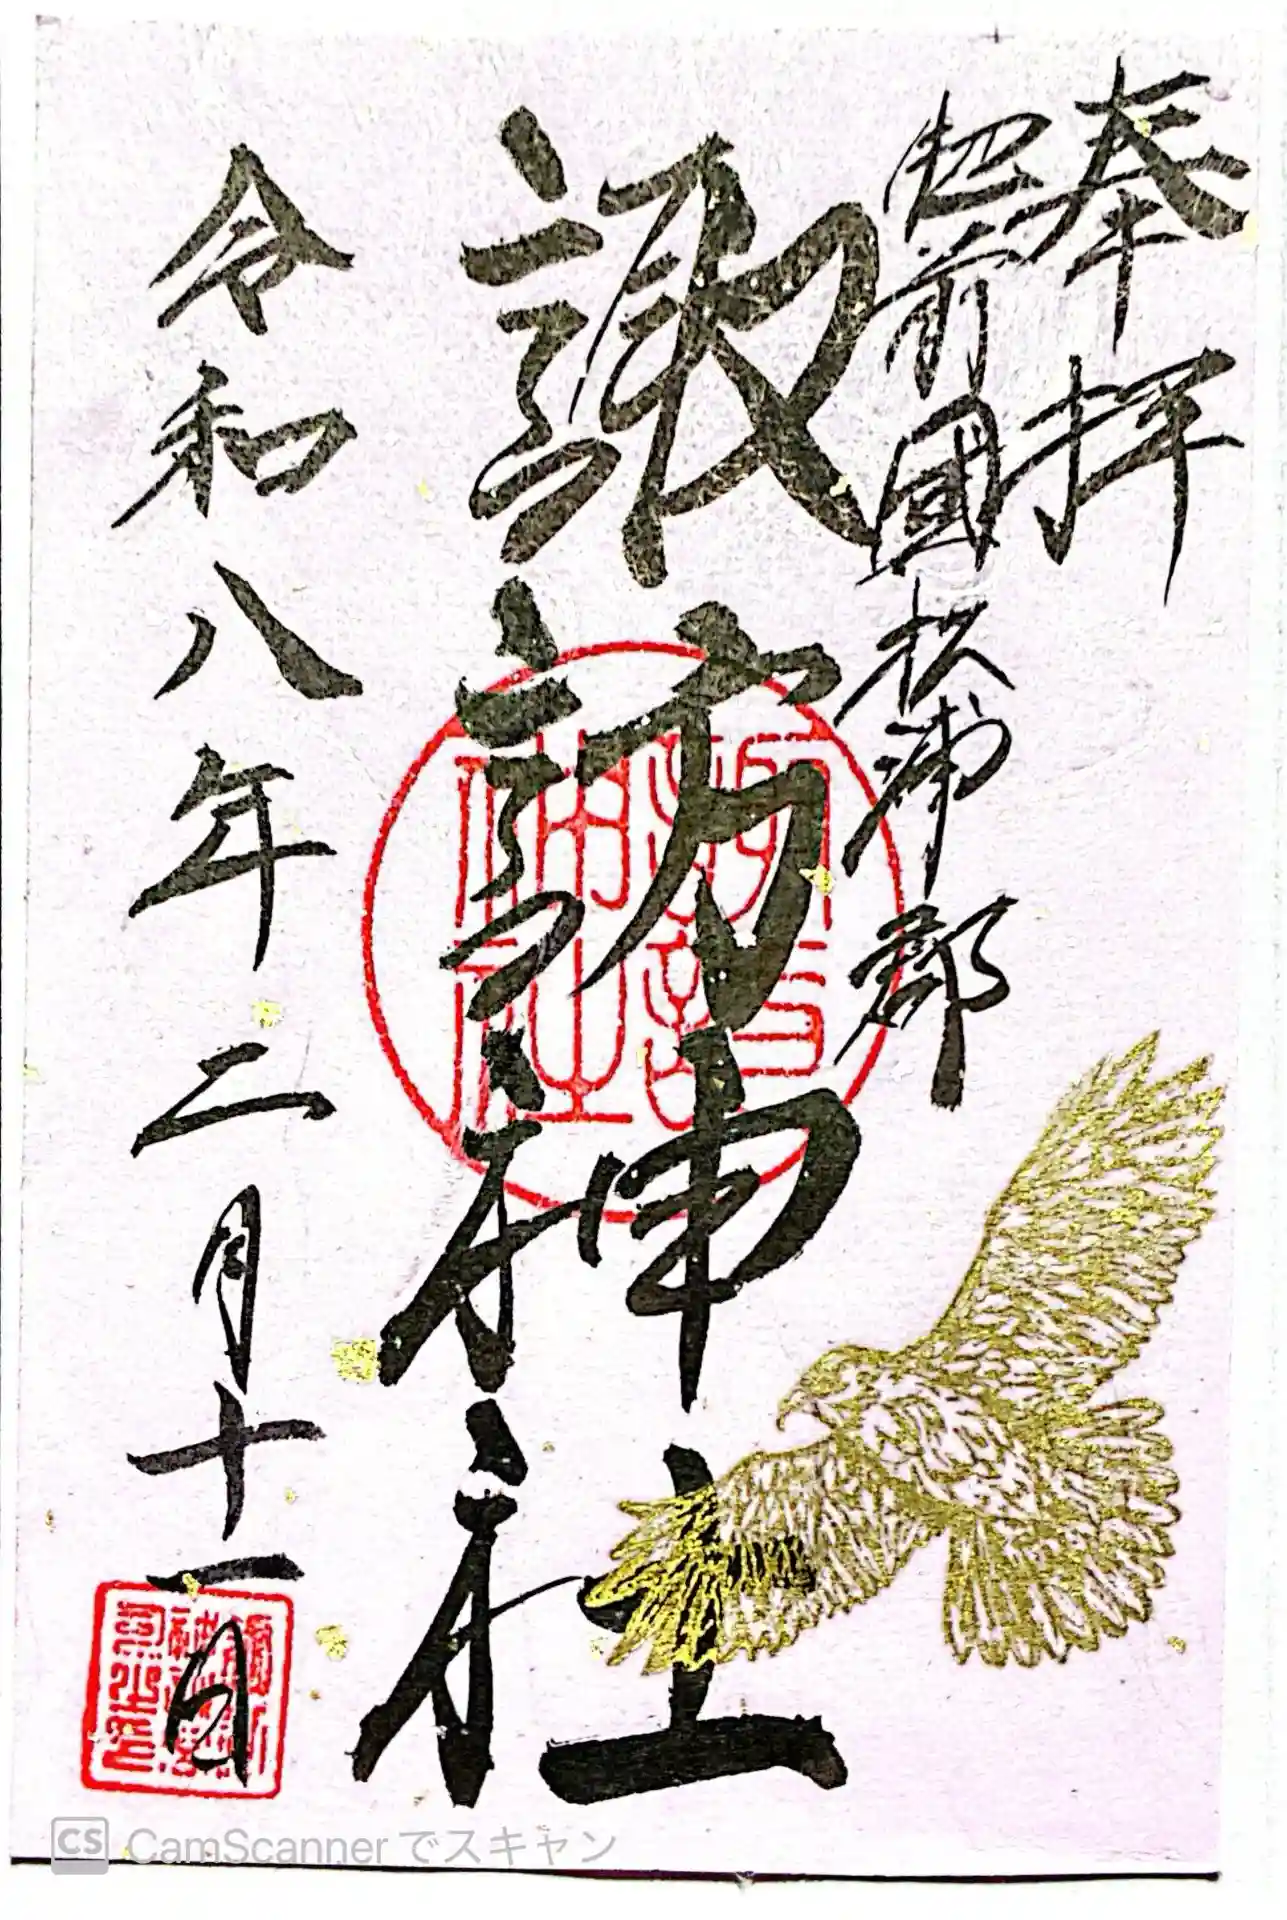 奉拝
肥前國松浦郡
諏訪神社
令和八年二月十一日
CS CamScannerでスキャン